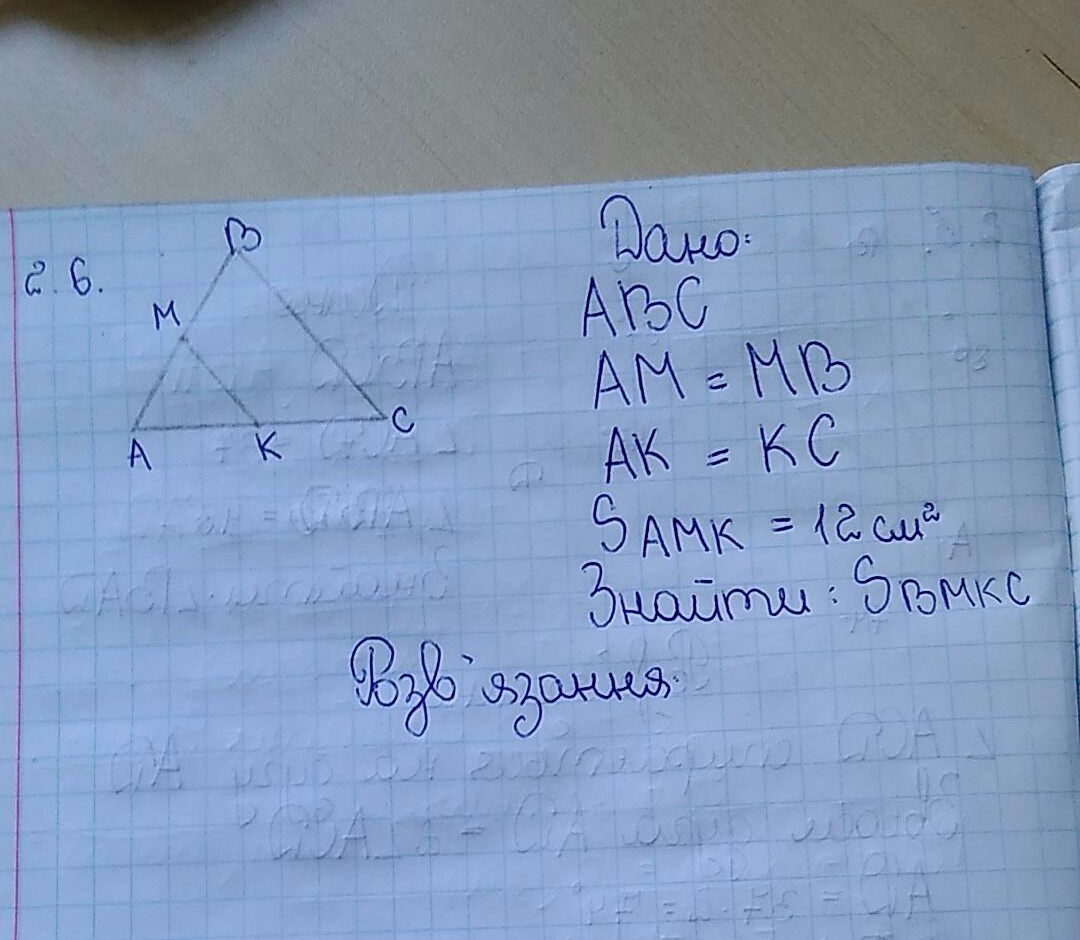 2.6.
B
M
A
K
C
Дано:
ABC
AM = MB
AK = KC
SAMK = 12 см²
Знайти: SBMKC
Розв'язання.